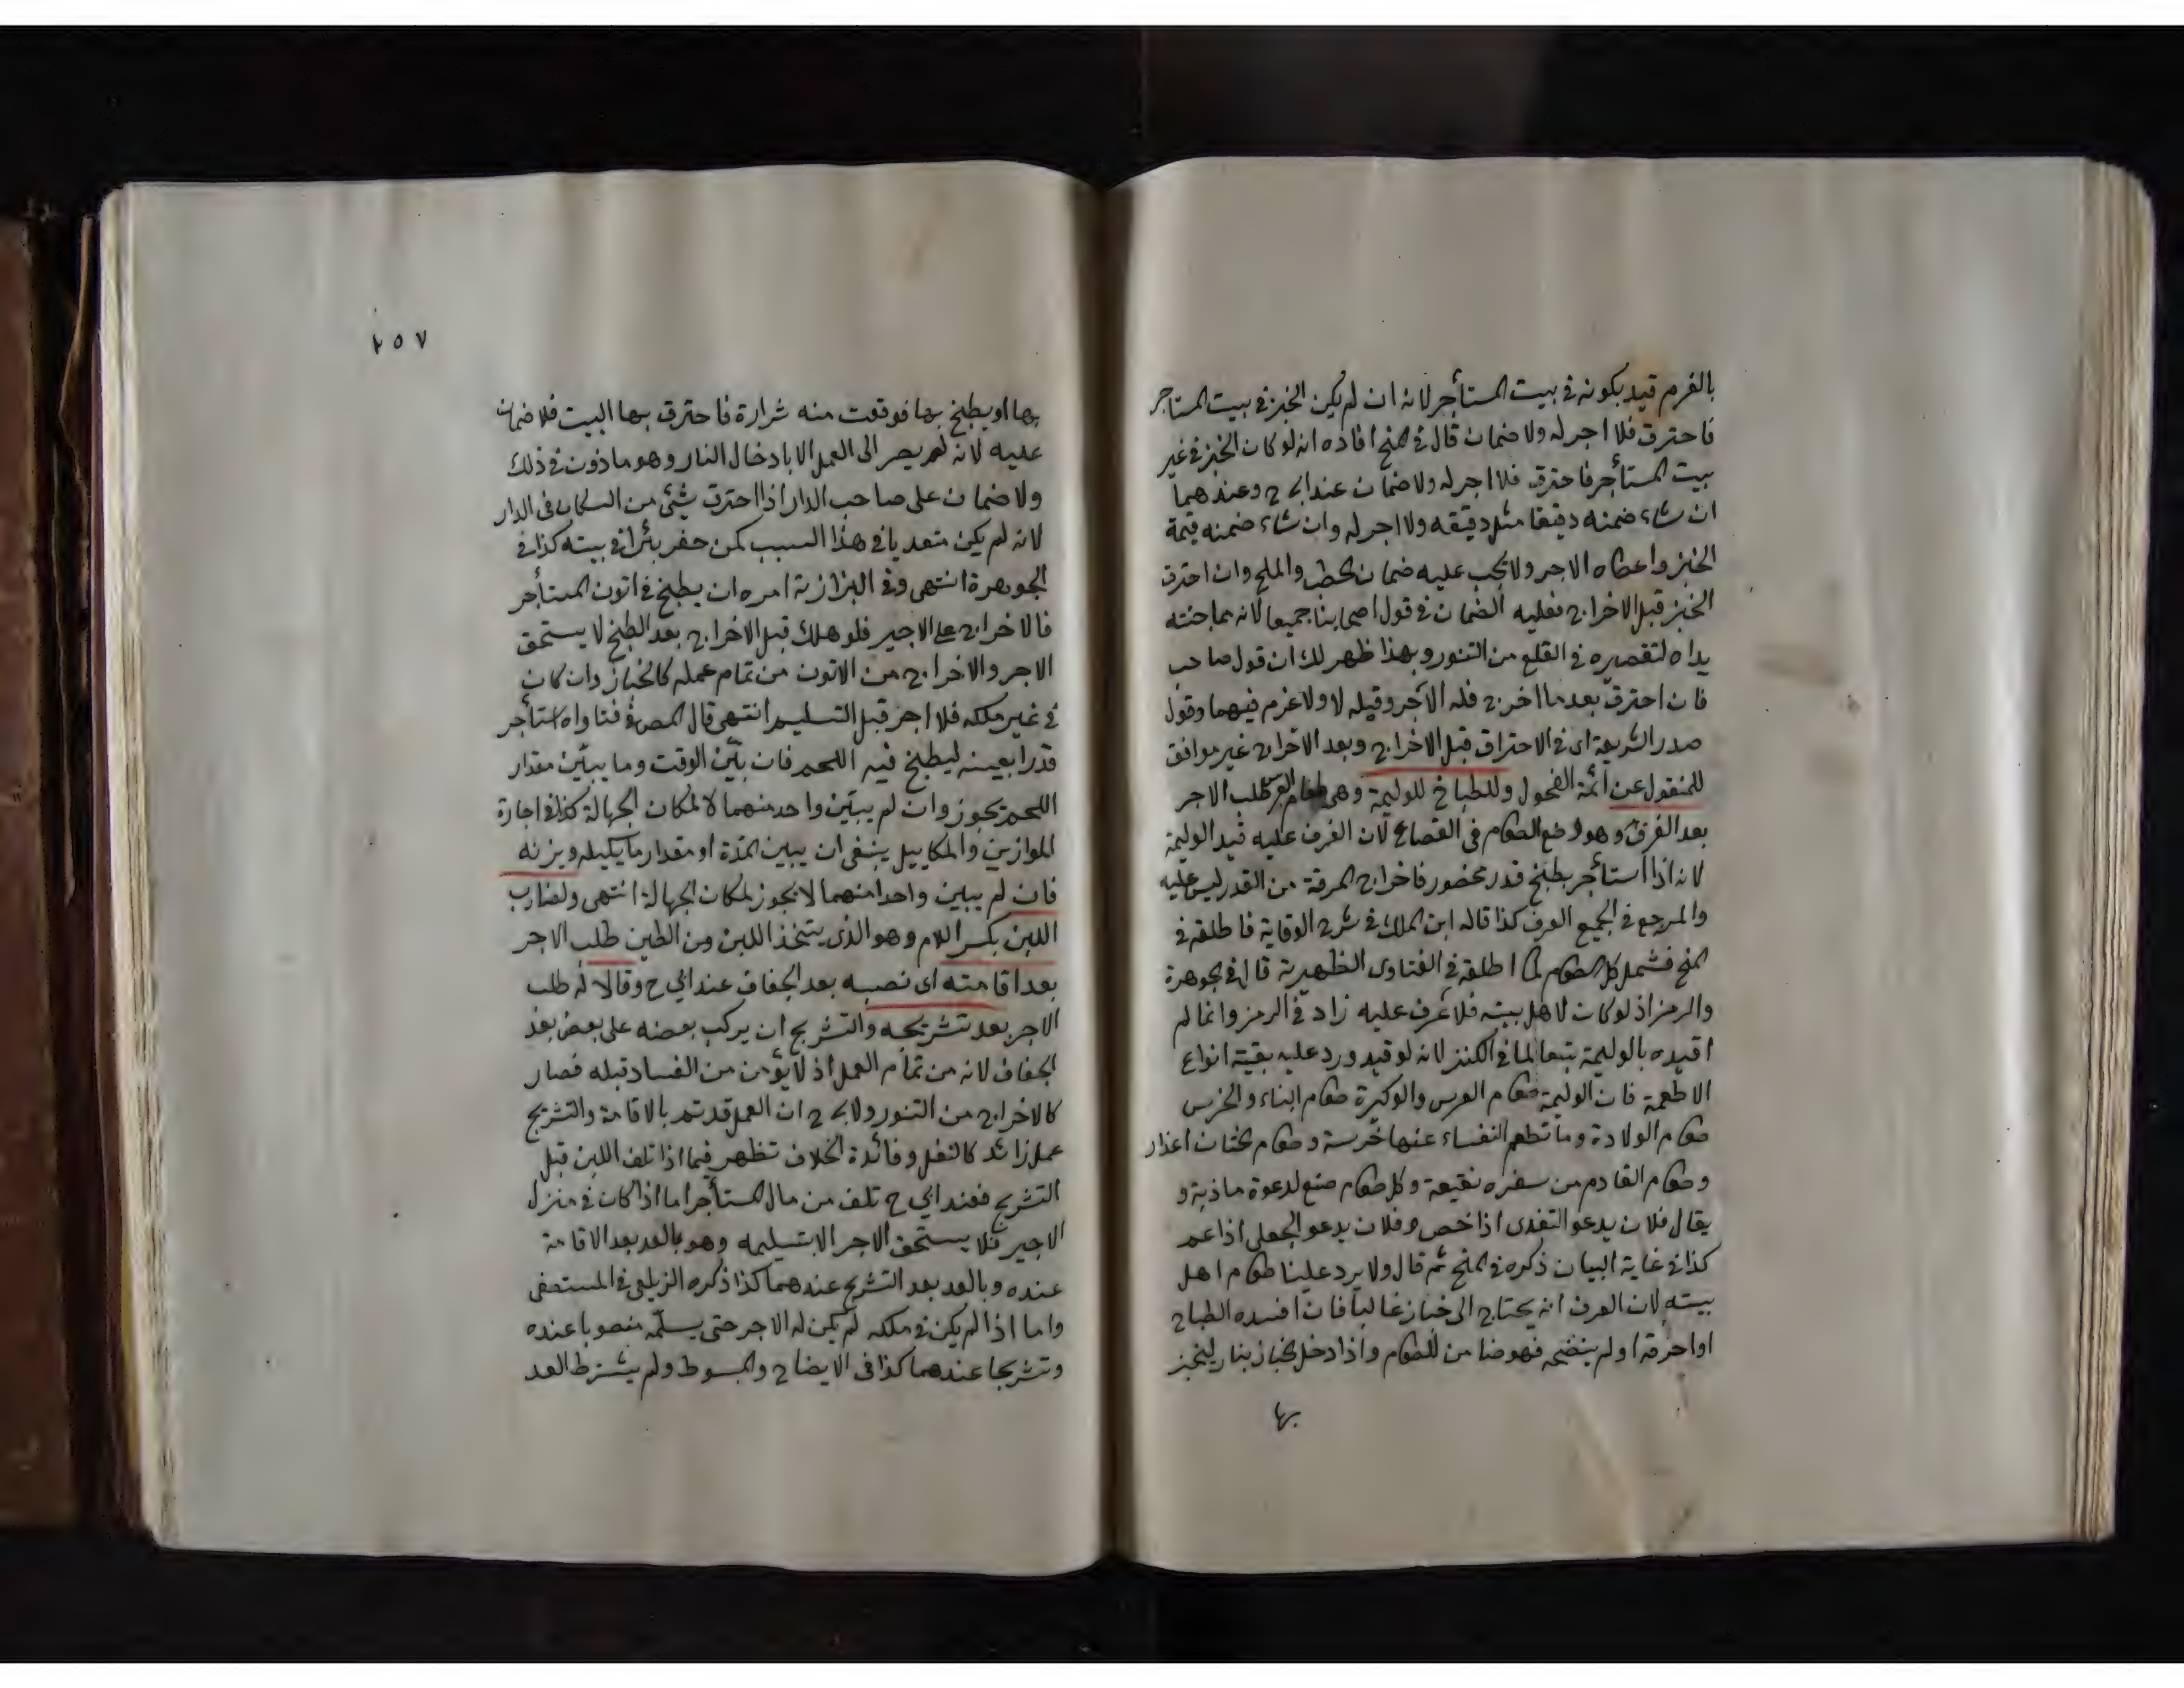 بالغرم قيد بكونه في بيت المستأجر لانه ان لم يكن الخبز في بيت المستاجر
فاحترق فلا اجر له ولا ضمان قال في المنح افاد انه لو كان الخبز في غير
بيت المستأجر فاحترق فلا اجر له ولا ضمان عند ابي ح وعندهما
ان شاء ضمنه دقيقا مثل دقيقه ولا اجر له وان شاء ضمنه قيمة
الخبز واعطاه الاجر ولا يجب عليه ضمان الحطب والملح وان احترق
الخبز قبل الاخراج فعليه الضمان في قول اصحابنا جميعا لانه مما جنته
يداه لتقصيره في القلع من التنور وبهذا ظهر لك ان قول صاحب
فان احترق بعد ما اخرج فله الاجر وقبله لا ولا غرم فيهما وقول
صدر الشريعة اى في الاحتراق قبل الاخراج وبعد الاخراج غير موافق
للمنقول عن ائمة الفحول وللطباخ للوليمة وهي طعام العرس طلب الاجر
بعد الغرف وهو وضع الطعام في القصاع لان الغرف عليه قيد الوليمة
لانه اذا استأجر بطبخ قدر مخصور فاخراج المرقة من القدر ليس عليه
والمرجع في الجميع العرف كذا قاله ابن الملك في شرح الوقاية فاطلقه في
المنح فشمل كل الطعام لما اطلقه في الفتاوى الظهيرية قال في الجوهرة
والرمز اذ لو كان لاهل بيته فلا غرف عليه زاد في الرمز وانما لم
اقيده بالوليمة تبعا لما في الكنز لانه لو قيد ورد عليه بقية انواع
الاطعمة فان الوليمة طعام العرس والوكيرة طعام البناء والخرس
طعام الولادة وما تطعم النفساء عنها خرسة وطعام الختان اعذار
وطعام القادم من سفره نقيعة وكل طعام صنع لدعوة مادبة و
يقال فلان يدعو النقرى اذا خص وفلان يدعو الجفلى اذا عم
كذا في غاية البيان ذكره في المنح ثم قال ولا يرد علينا طعام اهل
بيته لان العرف انه يحتاج الى خباز غالبا فان افسده الطباخ
او احرقه او لم ينضجه فهو ضامن للطعام واذا دخل الخباز بنار ليخبز
بها
٢٥٧
بها او يطبخ بها فوقعت منه شرارة فاحترق بها البيت فلا ضمان
عليه لانه لم يصر الى العمل الا بادخال النار وهو ماذون في ذلك
ولا ضمان على صاحب الدار اذا احترق شيئ من السكان في الدار
لانه لم يكن متعديا في هذا السبب كمن حفر بئرا في بيته كذا في
الجوهرة انتهى وفي البزازية امره ان يطبخ في اتون المستأجر
فالاخراج على الاجير فلو هلك قبل الاخراج بعد الطبخ لا يستحق
الاجر والاخراج من الاتون من تمام عمله كالخباز وان كان
في غير ملكه فلا اجر قبل التسليم انتهى قال المص في فتاواه استأجر
قدرا بعينه ليطبخ فيه اللحم فان بيّن الوقت وما يبيّن مقدار
اللحم يجوز وان لم يبيّن واحد منهما لا لمكان الجهالة كذا في اجارة
الموازين والمكاييل ينبغي ان يبين المدة او مقدار ما يكيله ويزنه
فان لم يبين واحدا منهما لا يجوز لمكان الجهالة انتهى ولضارب
اللبن بكسر اللام وهو الذى يتخذ اللبن من الطين طلب الاجر
بعد اقامته اى نصبه بعد الجفاف عند ابي ح وقالا له طلب
الاجر بعد تشريجه والتشريج ان يركب بعضه على بعض بعد
الجفاف لانه من تمام العمل اذ لا يؤمن من الفساد قبله فصار
كالاخراج من التنور ولابي ح ان العمل قد تم بالاقامة والتشريج
عمل زائد كالنقل وفائدة الخلاف تظهر فيما اذا تلف اللبن قبل
التشريج فعند ابي ح تلف من مال المستأجر اما اذا كان في منزل
الاجير فلا يستحق الاجر الا بتسليمه وهو بالعد بعد الاقامة
عنده وبالعد بعد التشريج عندهما كذا ذكره الزيلعي في المستصفى
واما اذا لم يكن في ملكه لم يكن له الاجر حتى يسلّمه منصوبا عنده
وتشريجا عندهما كذا في الايضاح والمبسوط ولم يشترط العد